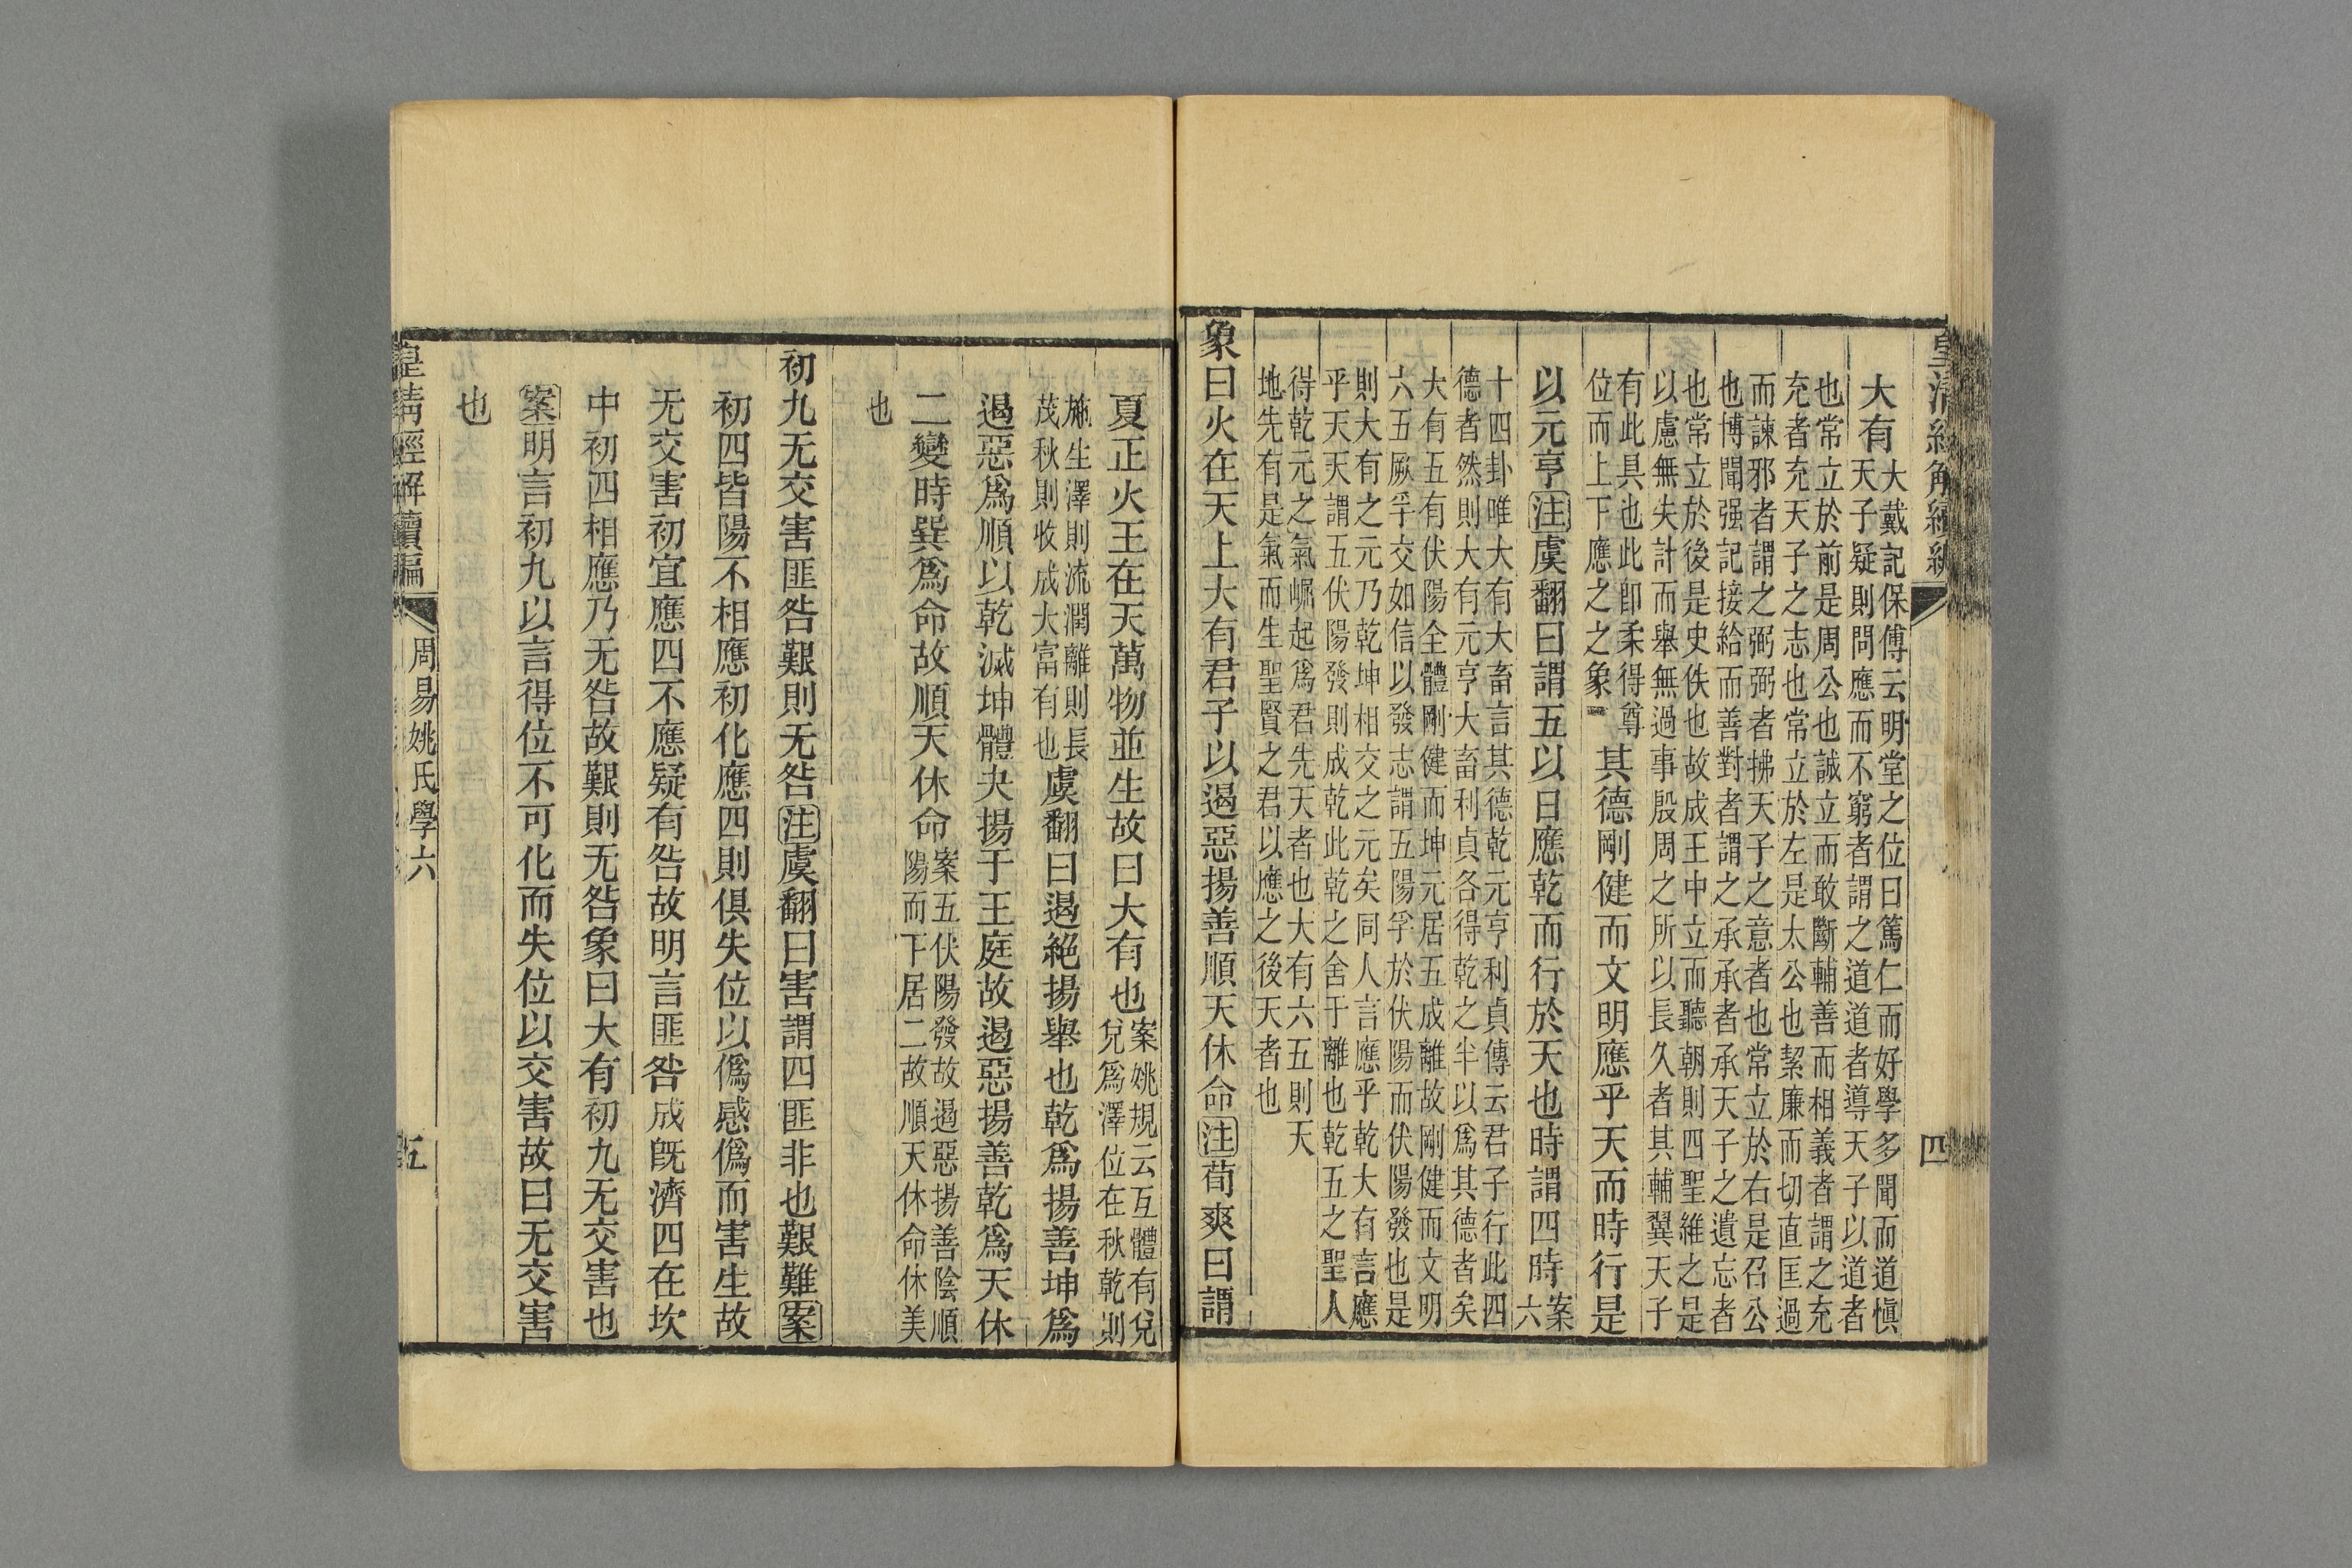 皇清經解續編
四
大有大戴記保傅云明堂之位曰篤仁而好學多聞而道慎
天子疑則問應而不窮者謂之道道者導天子以道者
也常立於前是周公也誠立而敢斷輔善而相義者謂之充
充者充天子之志也常立於左是太公也絜廉而切直匡過
而諫邪者謂之弼弼者拂天子之意者也常立於右是召公
也博聞强記接給而善對者謂之承承者承天子之遺忘者
也常立於後是史佚也故成王中立而聽朝則四聖維之是
以慮無失計而舉無過事殷周之所以長久者其輔翼天子
有此具也此卽柔得尊
位而上下應之之象
其德剛健而文明應乎天而時行是
以元亨注虞翻曰謂五以日應乾而行於天也時謂四時案
六
十四卦唯大有大畜言其德乾元亨利貞傳云君子行此四
德者然則大有元亨大畜利貞各得乾之半以爲其德者矣
大有五有伏陽全體剛健而坤元居五成離故剛健而文明
六五厥孚交如信以發志謂五陽孚於伏陽而伏陽發也是
則大有之元乃乾坤相交之元矣同人言應乎乾大有言應
乎天天謂五伏陽發則成乾此乾之舍于離也乾五之聖人
得乾元之氣崛起爲君先天者也大有六五則天
地先有是氣而生聖賢之君以應之後天者也
象曰火在天上大有君子以遏惡揚善順天休命注荀爽曰謂
夏正火王在天萬物並生故曰大有也案姚規云互體有兌
兌爲澤位在秋乾則
施生澤則流潤離則長
茂秋則收成大富有也
虞翻曰遏絕揚舉也乾爲揚善坤爲
遏惡爲順以乾滅坤體夬揚于王庭故遏惡揚善乾爲天休
二變時巽爲命故順天休命案五伏陽發故遏惡揚善陰順
陽而下居二故順天休命休美
也
初九无交害匪咎艱則无咎注虞翻曰害謂四匪非也艱難案
初四皆陽不相應初化應四則俱失位以僞感僞而害生故
无交害初宜應四不應疑有咎故明言匪咎成旣濟四在坎
中初四相應乃无咎故艱則无咎象曰大有初九无交害也
案明言初九以言得位不可化而失位以交害故曰无交害
也
皇清經解續編
周易姚氏學六
五